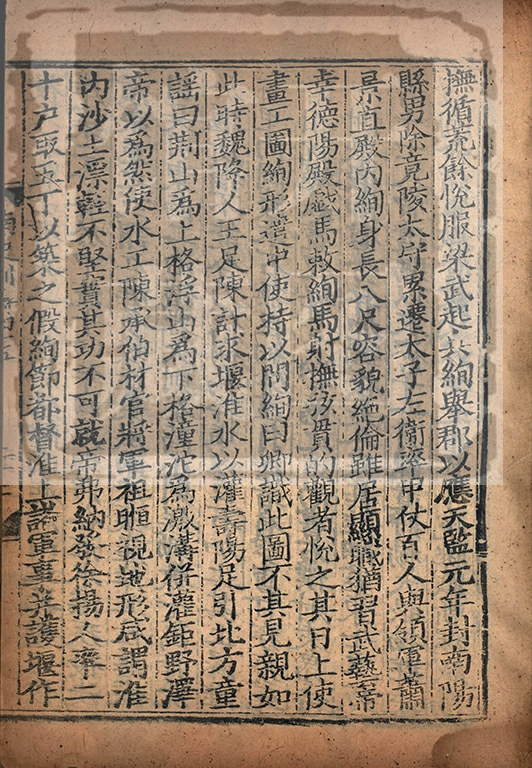 撫循荒餘悅服梁武起兵絢舉郡以應天監元年封南陽
縣男除竟陵太守累遷太子左衛率甲仗百人與領軍蕭
景直殿內絢身長八尺容貌絶倫雖居顯職猶習武藝帝
幸德陽殿戲馬敕絢馬射撫弦貫的觀者悅之其日上使
畫工圖絢形遣中使持以問絢曰卿識此圖不其見親如
此時魏降人王足陳計求堰淮水以灌壽陽足引北方童
謡曰荆山爲上格浮山爲下格潼沱爲激溝併灌鉅野澤
帝以爲然使水工陳承伯材官將軍祖暅視地形咸謂淮
内沙土漂輕不堅實其功不可就帝弗納發徐揚人率二
十户取五丁以築之假絢節都督淮上諸軍事并護堰作